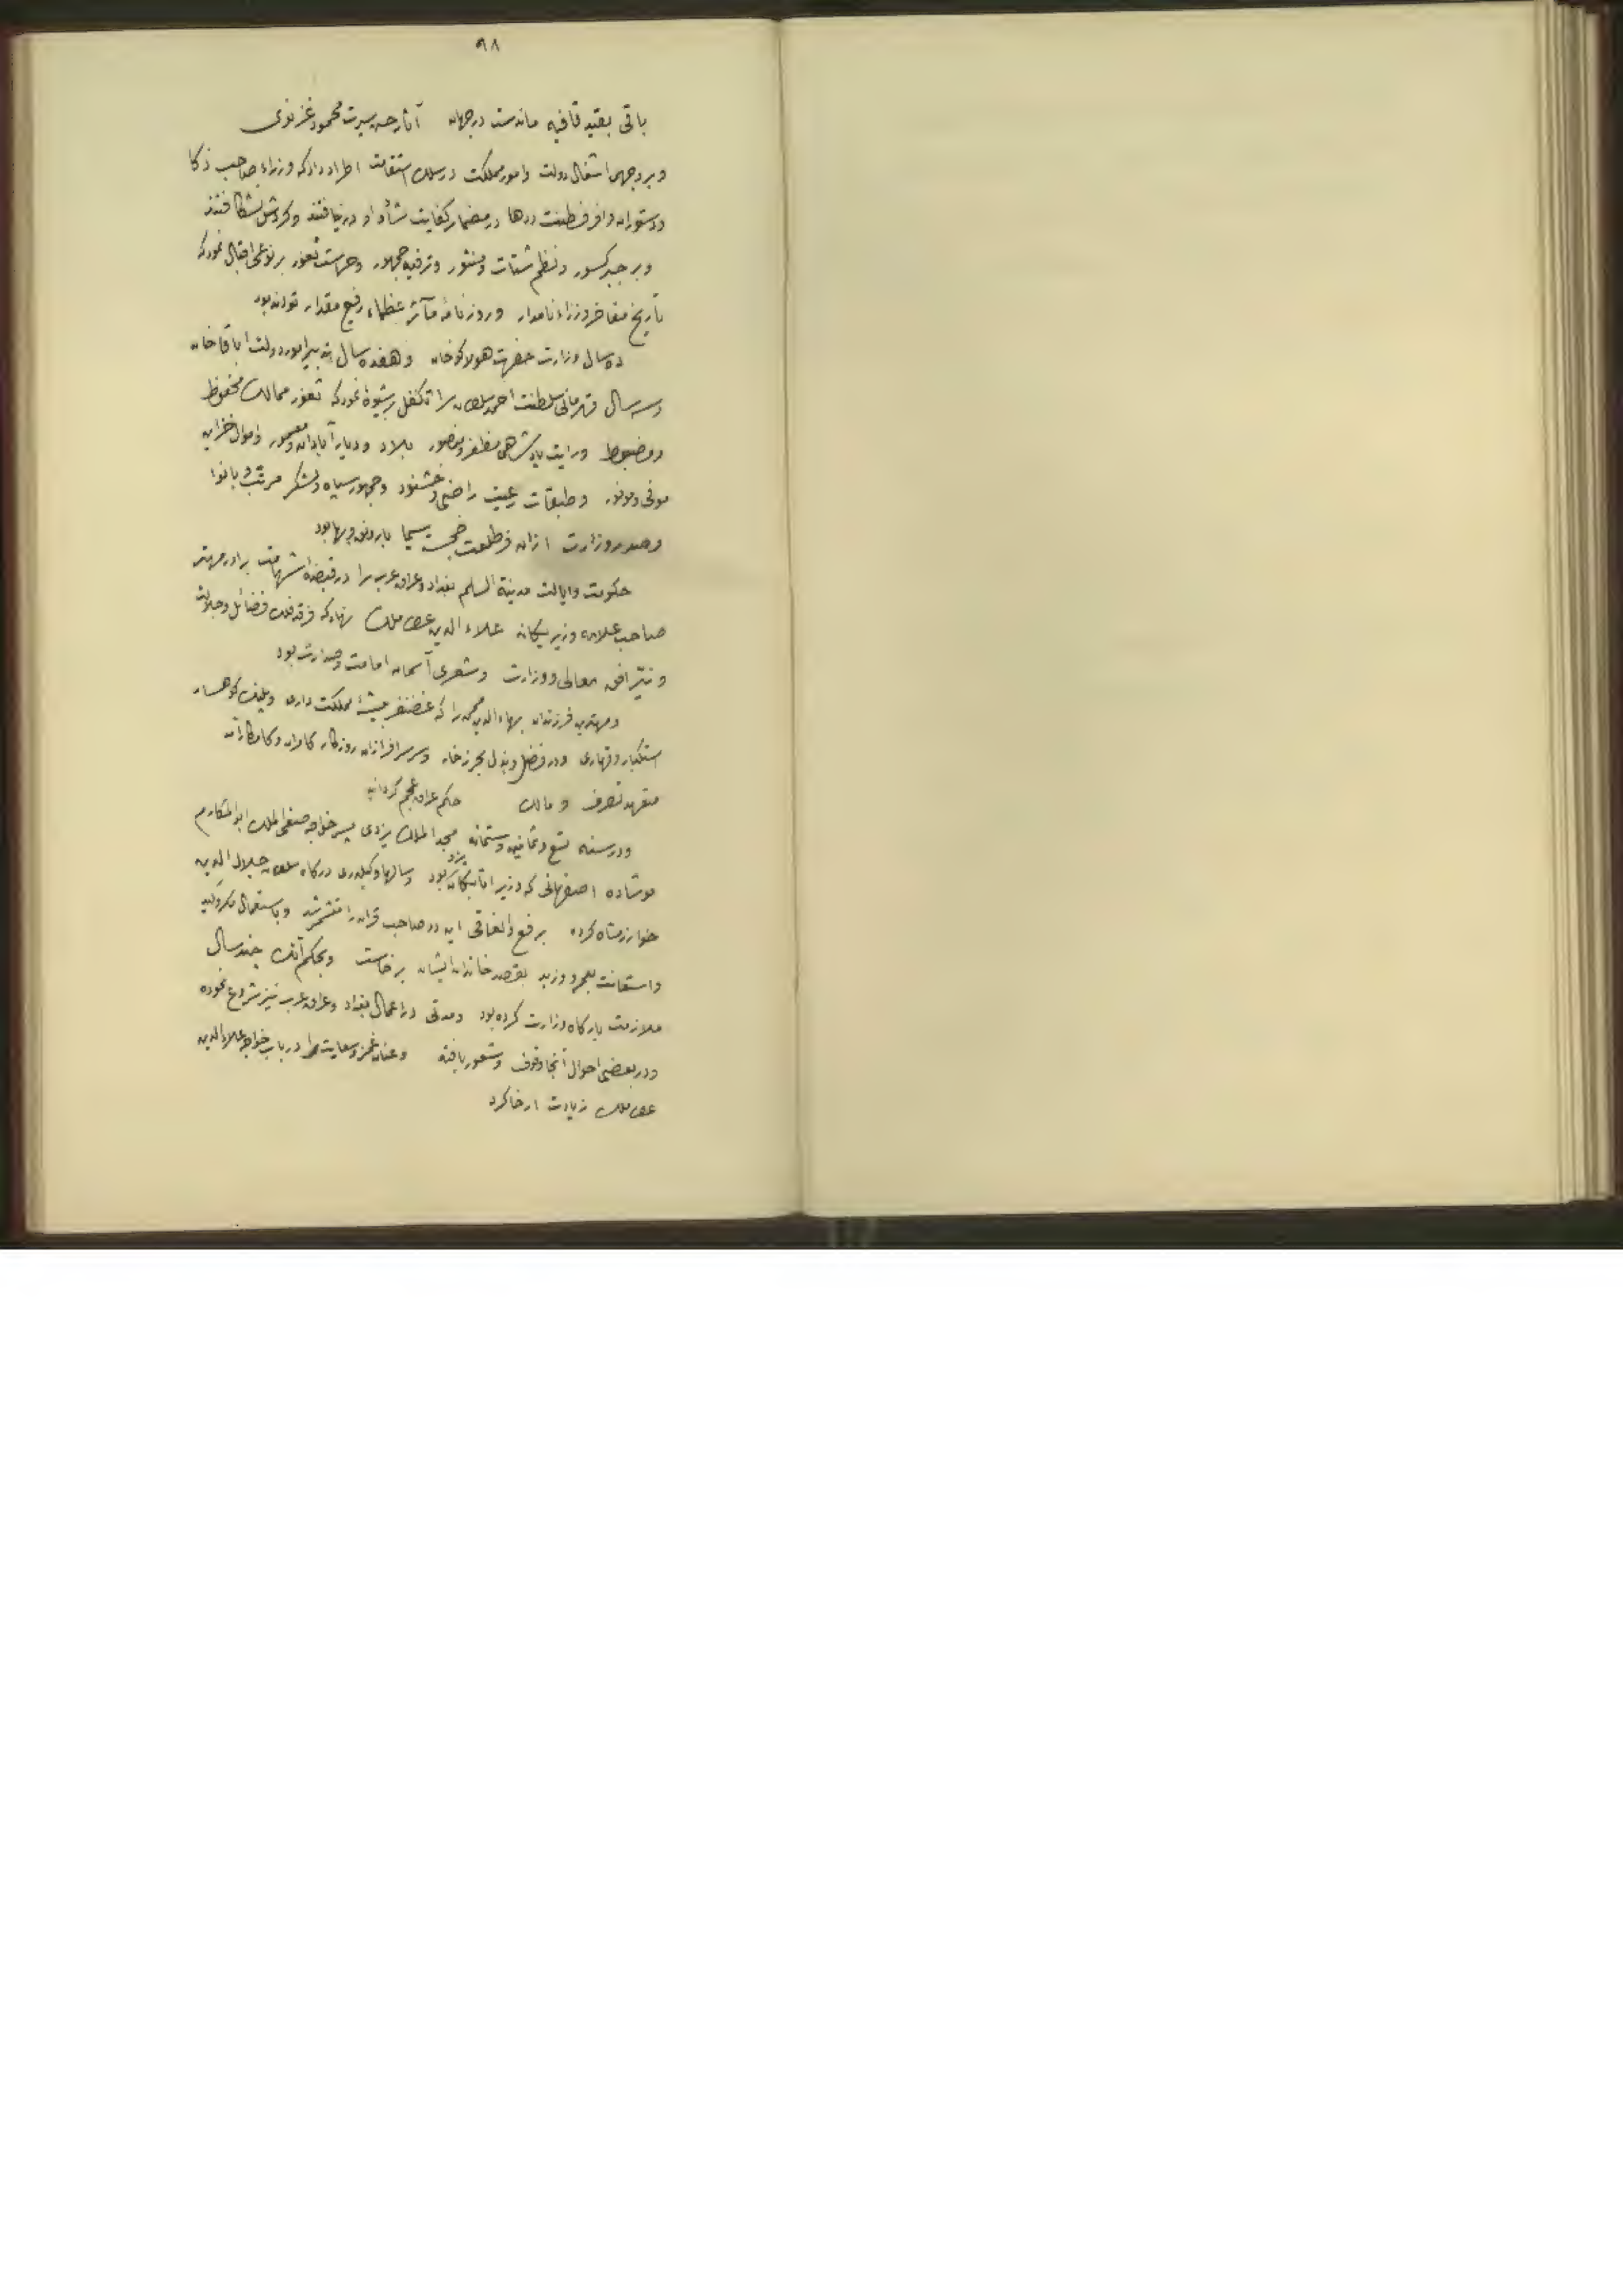 ۹۸
باقی بقید قافیه ماندست در جهان آثار حسن سیرت محمود غزنوی
و بر وجهی اشغال دولت و امور مملکت در سلک استقامت اطراد داد که وزراء صاحب ذکا
و دستوران وافر فطنت و دها در مضمار کفایت شأو او در نیافتند و گردش نشکافتند
و بر جبر کسور و نظم شتات و منثور و ترفیه جمهور و حراست ثغور بر نوعی اقبال نمود که
تاریخ مفاخر وزراء نامدار و روزنامهٔ مآثر عظماء رفیع مقدار تواند بود
ده سال وزارت حضرت هولاکوخان و هفده سال تدبیر امور دولت اباقاخان
و سه سال قهرمانی سلطنت احمد سلطان را تکفل بر شیوهٔ نمود که ثغور ممالک محفوظ
و مضبوط و رایت پادشاهی مظفر و منصور بلاد و دیار آبادان و معمور و اموال خزاین
موفی و موفور و طبقات رعیت راضی و خشنود و جمهور سپاه و لشکر مرتب و بانوا
و صدر وزارت ازان فر طلعت خجسته سیما با رونق و بها بود
حکومت و ایالت مدینة السلم بغداد و عراق عرب را در قبضهٔ شهامت برادر مهتر
صاحب علامه وزیر یگانه علاء الدین عطا ملک نهاد که فرقد فلک فضائل و جلالت
و نیّر افق معالی و وزارت و شعری آسمان امامت و صدارت بود
و مهترین فرزندان بهاء الدین محمد را که غضنفر بیشهٔ مملکت داری و پلنگ کوهسار
استکبار و قهاری و در فضل و بذل بحر زخار و سر سرافرازان روزگار کامران و کامکار آمد
متعهد تصرف و مالک حکم عراق عجم گردانید
و در سنه تسع و ثمانین و ستمائه مجد الملک یزدی پسر خواجه صفی الملک ابو المکارم
موشاده اصفهانی که وزیر اتابکان یزد بود و سالها وکیلدری درگاه سلطان جلال الدین
خوارزمشاه کرده برفع والغاقی این دو صاحب قران را متشمر شد و باستعمال مکر و کید
و استعانت بعمرو و زید بقصد خاندان ایشان برخاست و بحکم آنک چند سال
ملازمت بارگاه وزارت کرده بود و مدتی در اعمال بغداد و عراق عرب نیز شروع نموده
و در بعضی احوال آنجا وقوف و شعور یافته و عنان غمز و سعایت را در باب خواجه علاء الدین
عطا ملک زیادت ارخا کرد